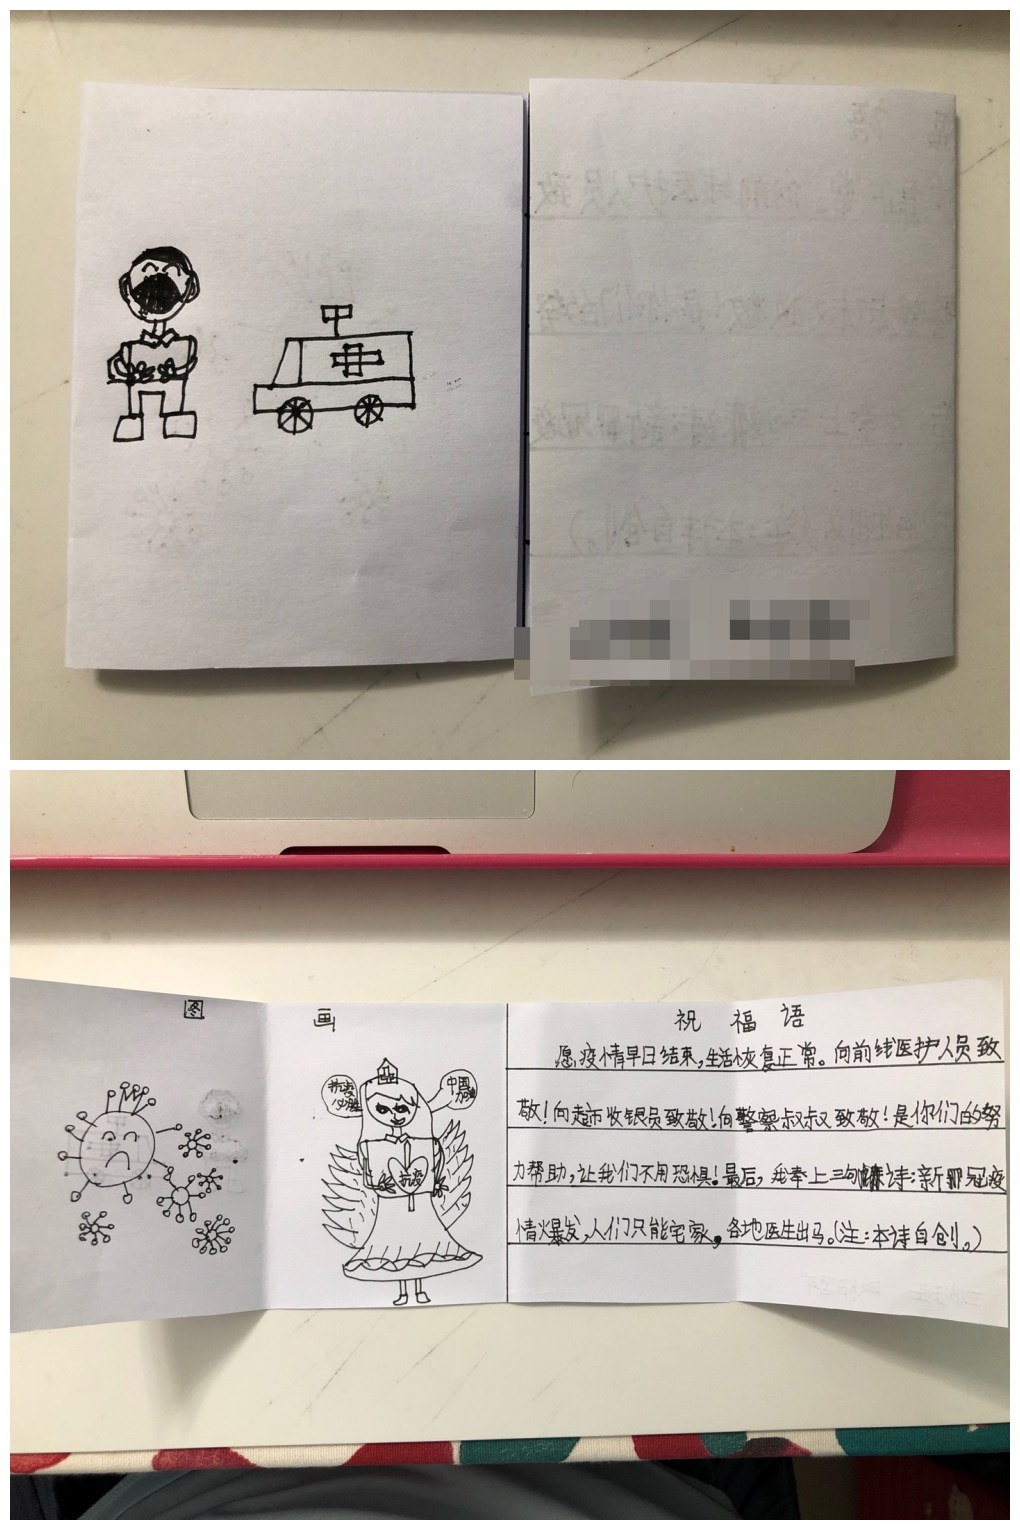 图 画
抗疫必胜
中国加油
抗疫
祝福语
愿疫情早日结束,生活恢复正常。向前线医护人员致
敬!向超市收银员致敬!向警察叔叔致敬!是你们的努
力帮助,让我们不用恐惧!最后,我奉上三句诗:新冠疫
情爆发,人们只能宅家。各地医生出马。(注:本诗自创。)